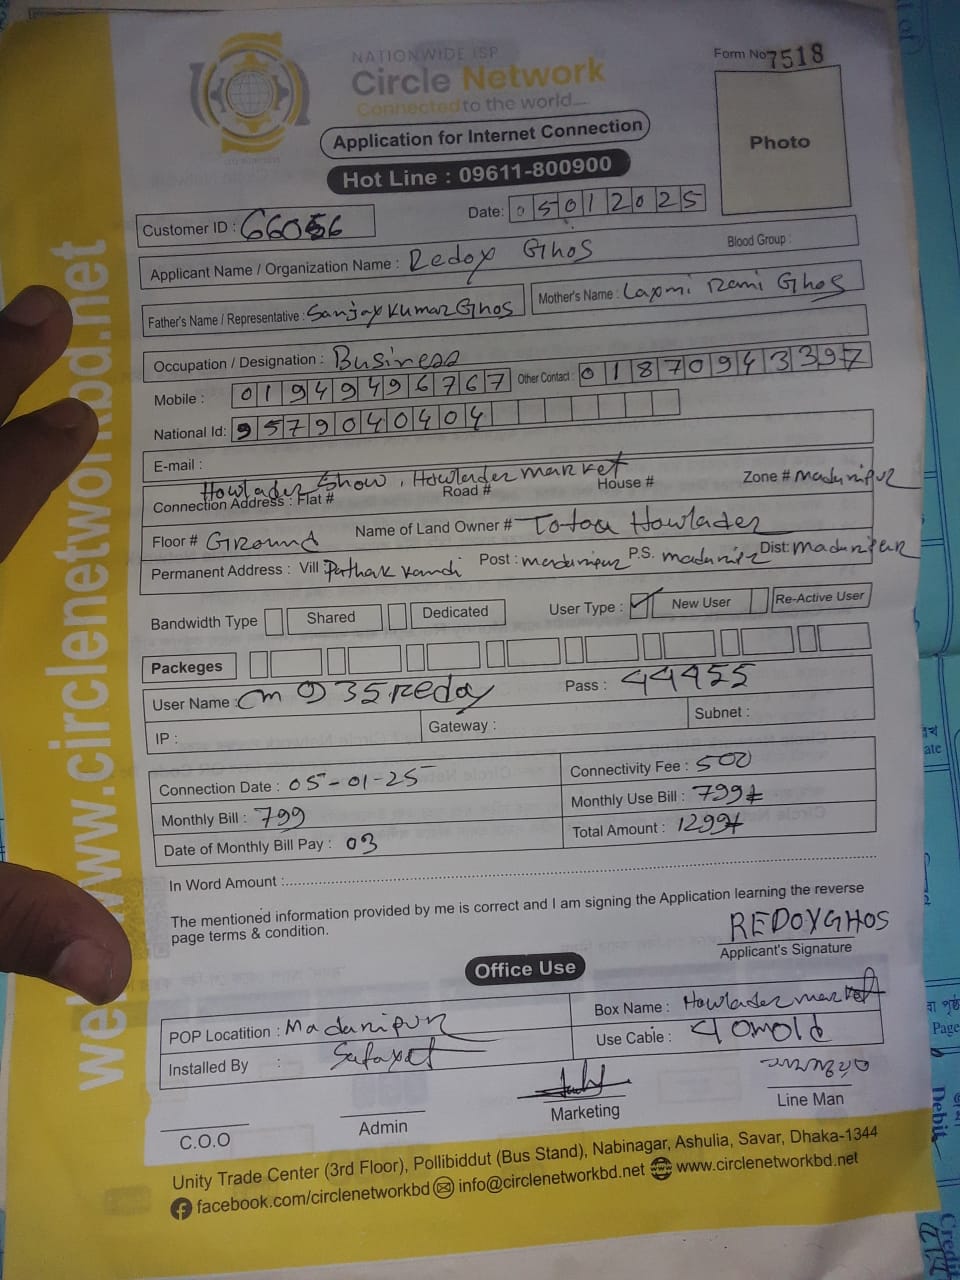 NATIONWIDE ISP
Circle Network
Connected to the world....
Form No 7518
Application for Internet Connection
Photo
Hot Line : 09611-800900
Date: 05012025
Customer ID : 66056
Applicant Name / Organization Name : Redoy Ghos Blood Group :
Father's Name / Representative : Sanjay Kumar Ghos Mother's Name : Laxmi Rani Ghos
Occupation / Designation : Business
Mobile : 01949496767 Other Contact : 01870943397
National Id: 9579040404
E-mail :
Howlader Show, Howlader market
Connection Address : Flat # Road # House # Zone # Madaripur
Floor # Ground Name of Land Owner # Totaa Howlader
Permanent Address : Vill Pathak kandi Post : madaripur P.S. madaripur Dist: madaripur
Bandwidth Type Shared Dedicated User Type : New User Re-Active User
Packeges
User Name : cm 935.redoy Pass : 44455
IP : Gateway : Subnet :
Connection Date : 05-01-25 Connectivity Fee : 500
Monthly Bill : 799 Monthly Use Bill : 799/
Date of Monthly Bill Pay : 03 Total Amount : 1299/
In Word Amount :
The mentioned information provided by me is correct and I am signing the Application learning the reverse
page terms & condition.
REDOYGHOS
Applicant's Signature
Office Use
POP Locatition : Madaripur Box Name : Howlader market
Installed By : Use Cable : 40m old
C.O.O Admin Marketing Line Man
Unity Trade Center (3rd Floor), Pollibiddut (Bus Stand), Nabinagar, Ashulia, Savar, Dhaka-1344
facebook.com/circlenetworkbd info@circlenetworkbd.net www.circlenetworkbd.net
www.circlenetworkbd.net
ate
Page
Debit
Credit